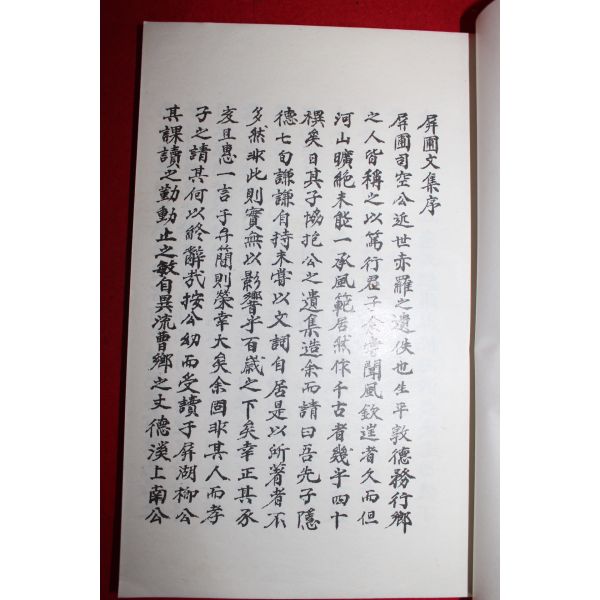 屛圃文集序
屛圃司空公近世赤羅之遺佚也生平敦德務行鄕
之人皆稱之以篤行君子余嘗聞風欽䢠者久而但
河山曠絶未能一承風範居然作千古者幾乎四十
禩矣日其子協抱公之遺集造余而請曰吾先子隱
德七旬謙謙自持未嘗以文詞自居是以所著者不
多然非此則實無以影響乎百歲之下矣幸正其承
亥且惠一言于弁簡則榮幸大矣余固非其人而孝
子之請其何以終辭哉按公幼而受讀于屛湖柳公
其課讀之勤動止之敏自異流曹鄕之丈德溪上南公